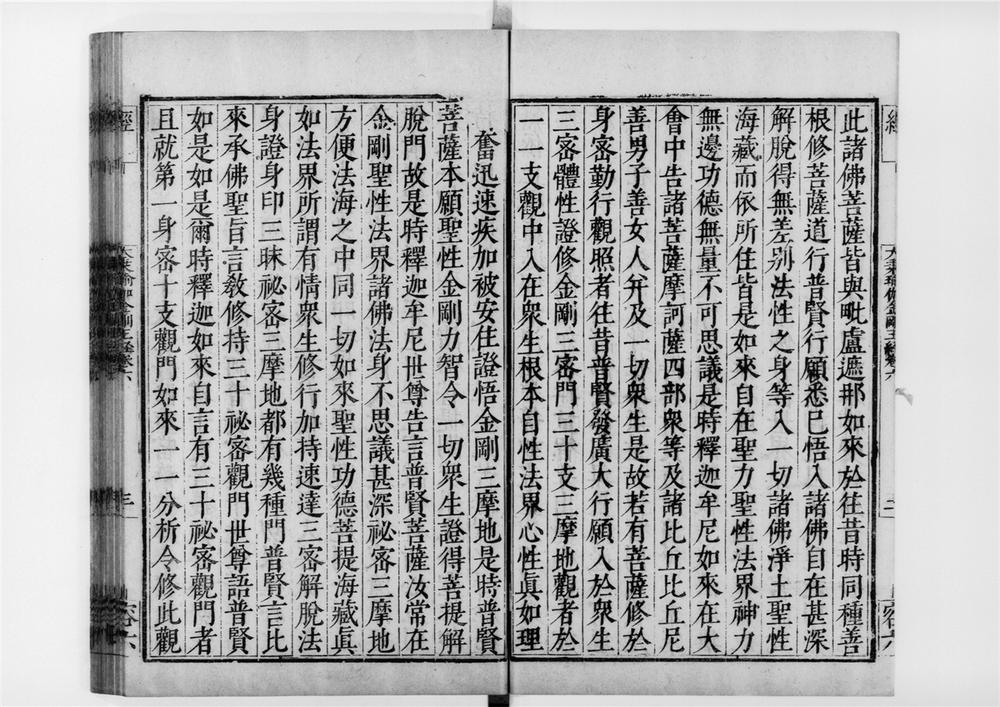 此諸佛菩薩皆與毗盧遮那如來於往昔時同種善
根修菩薩道行普賢行願悉已悟入諸佛自在甚深
解脫得無差別法性之身等入一切諸佛淨土聖性
海藏而依所住皆是如來自在聖力聖性法界神力
無邊功德無量不可思議是時釋迦牟尼如來在大
會中告諸菩薩摩訶薩四部衆等及諸比丘比丘尼
善男子善女人并及一切衆生是故若有菩薩修於
身密勤行觀照者往昔普賢發廣大行願入於衆生
三密體性證修金剛三密門三十支三摩地觀者於
一一支觀中入在衆生根本自性法界心性眞如理
奮迅速疾加被安住證悟金剛三摩地是時普賢
菩薩本願聖性金剛力智令一切衆生證得菩提解
脫門故是時釋迦牟尼世尊告言普賢菩薩汝常在
金剛聖性法界諸佛法身不思議甚深祕密三摩地
方便法海之中同一切如來聖性功德菩提海藏眞
如法界所謂有情衆生修行加持速達三密解脫法
身證身印三昧祕密三摩地都有幾種門普賢言比
來承佛聖旨言教修持三十祕密觀門世尊語普賢
如是如是爾時釋迦如來自言有三十祕密觀門者
且就第一身密十支觀門如來一一分析令修此觀